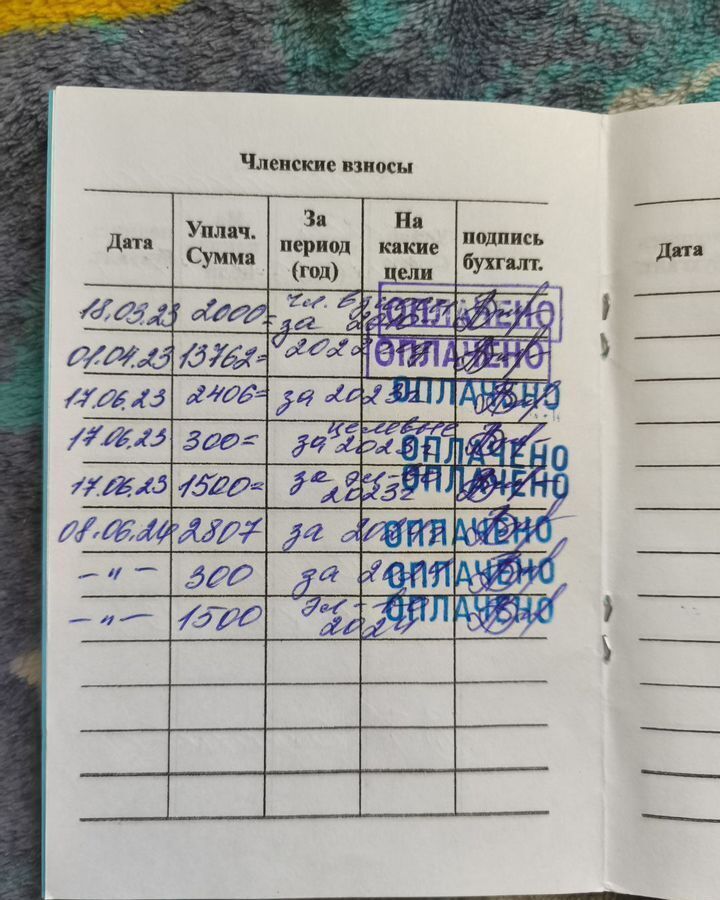 Членские взносы
Дата Уплач. Сумма За период (год) На какие цели подпись бухгалт. Дата
18.03.23 2000= чл. за ОПЛАЧЕНО
01.04.23 13762= 2022 ОПЛАЧЕНО
17.06.23 2406= за 2023г ОПЛАЧЕНО
17.06.23 300= целевые за 2023г ОПЛАЧЕНО
17.06.23 1500= за эл-во 2023г ОПЛАЧЕНО
08.06.24 2807 за ОПЛАЧЕНО
-"- 300 за ОПЛАЧЕНО
-"- 1500 эл-во 2024 ОПЛАЧЕНО